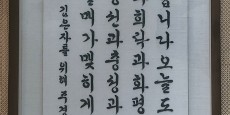 니다오늘도
희락과화평
양선과충성과
열매가맺히게
김은자를 위해 주경